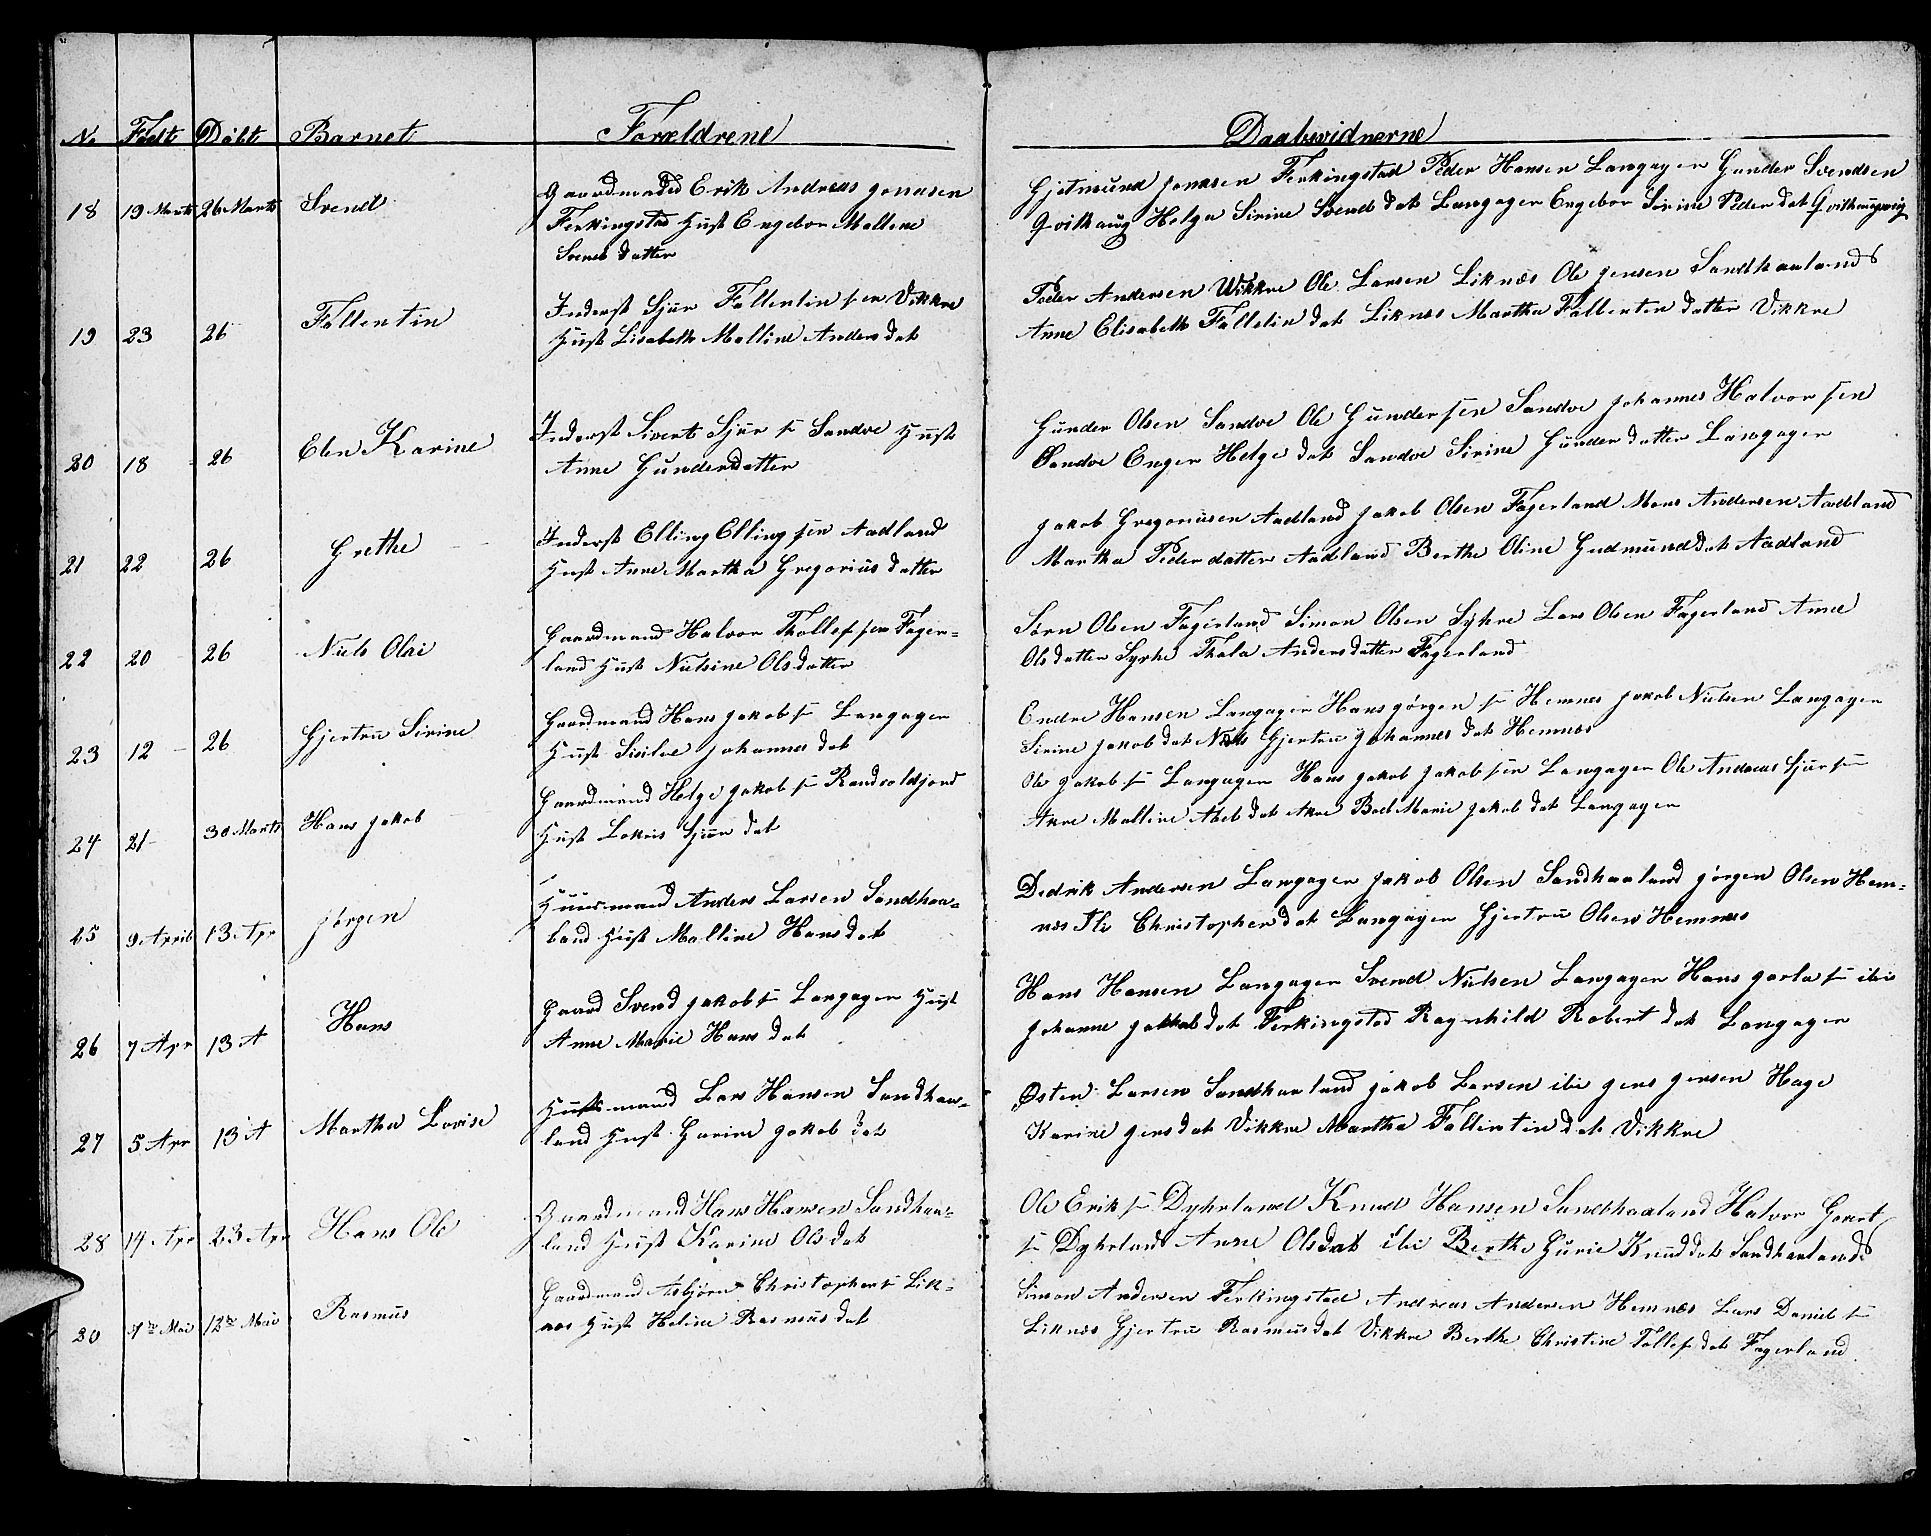 No Födt Döbt Barnet Forældrene Daabsvidnerne
18 19 Marts 26 Marts Svend Gaardmand Erik Andreas Jonasen
Ferkingstad Hust Engebor Mallene
Svends datter
Gjetmund Jonasen Ferkingstad Peder Hansen Langager Gunder Svendsen
Qvilhaug Helga Sirine Svends dat Langager Engebor Sirine Peder dat Qvilhaugvig
19 23 26 Fallentin Inderst Sjur Fallentin sen Vikkre
Hust Lisabeth Malline Anders dat
Peder Andersen Wikkre Ole Larsen Liknæs Ole Jensen Sandhaaland
Anne Elisabeth Falletin dat Liknæs Martha Fallenten datter Vikkre
20 18 26 Elen Karine Inderst Sivert Sjur s Sandve Hust
Anne Gunderdatter
Gunder Olsen Sandve Ole Gundersen Sandve Johannes Halvorsen
Sandve Enger Helge dat Sandve Sirine Gunder datter Langager
21 22 26 Grethe Inderst Elling Ellingsen Aadland
Hust Anne Martha Gregorius datter
Jakob Gregoriusen Aadland Jakob Olsen Fagerland Mons Andersen Aadland
Martha Peder datter Aadland Berthe Oline Gudmund dat Aadland
22 20 26 Niels Olai Gaardmand Halvor Thollefsen Fager-
land Hust Nielsine Olsdatter
Sørn Olsen Fagerland Simon Olsen Syhre Lars Olsen Fagerland Anne
Olsdatter Syrhe Thala Andersdatter Fagerland
23 12 26 Gjertru Sirine Gaardmand Hans Jakob s Langager
Hust Sisilve Johannes dat
Endre Hansen Langager Hans Jørgen s Hemnes Jakob Nielsen Langager
Sirine Jakob dat Næs Gjertru Johannes dat Hemnæs
24 21 30 Marts Hans Jakob Gaardmand Helge Jakob s Randvoldjord
Hust Lakris Sjur dat
Ole Jakob s Langager Hans Jakob Jakobsen Langager Ole Andreas Sjur s
Akre Malline Abel dat Akre Boel Marie Jakob dat Langager
25 9 April 13 Apr Jørgen Huusmand Anders Larsen Sandhaa-
land Hust Malline Hans dat
Dedrik Andersen Langager Jakob Olsen Sandhaaland Jørgen Olsen Hem-
nes Ili Christopher dat Langager Gjertru Olsen Hemnes
26 7 Apr 13 A Hans Gaard Svend Jakob s Langager Hust
Anne Marie Hans dat
Hans Hansen Langager Svend Nielsen Langager Hans Jarla s ibi
Johanne Jakkob dat Ferkingstad Ragnhild Robert dat Langager
27 5 Apr 13 A Martha Lovise Husmand Lars Hansen Sandhaa-
land Hust Garine Jakob dat
Østen Larsen Sandhaaland Jakob Larsen ibi Jens Jensen Hage
Karine Jens dat Vikkre Martha Fallintin dat Vikkre
28 14 Apr 23 Apr Hans Ole Gaardmand Hans Hansen Sandhaa-
land Hust Karine Ols dat
Ole Erik s Dyhrland Knud Hansen Sandhaaland Halvor Govert
s Dyhrland Anne Olsdat ibi Berthe Gurie Knud dat Sandhaaland
20 7de Mai 12te Mai Rasmus Gaardmand Asbjørn Christopher s Lik-
nes Hust Heline Rasmus dat
Simon Andersen Ferkingstad Andreas Andersen Hemnæs Lars Daniel s
Liknæs Gjertru Rasmusdat Vikkre Berthe Christine Tollef dat Fagerland